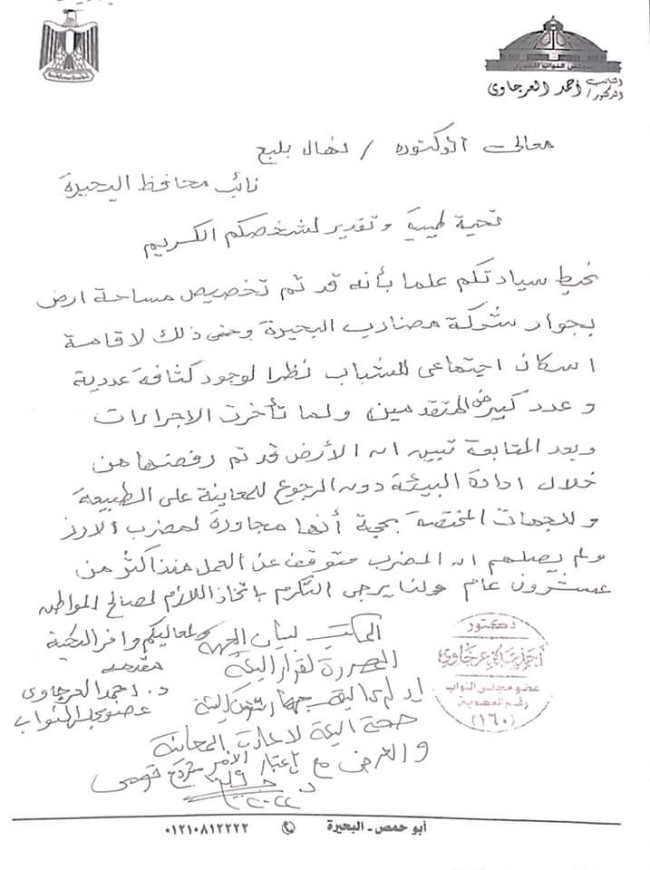 مجلس النواب المصري
النائب
الدكتور/ أحمد العرجاوى
معالى الدكتورة / نهال بلبع
نائب محافظ البحيرة
تحية طيبة وتقدير لشخصكم الكريم
نحيط سيادتكم علما بأنه قد تم تخصيص مساحة ارض
بجوار شركة مضارب البحيرة وحتى ذلك لاقامة
اسكان اجتماعى للشباب نظرا لوجود كثافة عددية
وعدد كبير من المتقدمين ولما تأخرت الاجراءات
وبعد المتابعة تبين ان الأرض قد تم رفضها من
خلال ادارة البيئة دون الرجوع للمعاينة على الطبيعة
وللجهات المختصة بحجة أنها مجاورة لمضرب الارز
ولم يصلهم ان المضرب متوقف عن العمل منذ اكثر من
عشرون عام ولنا يرجى التكرم باتخاذ اللازم لصالح المواطن
ولمعاليكم وافر التحية
مقدمه
د. احمد العرجاوى
عضو مجلس النواب
المكتب لبيان الجهة
المصدرة لقرار البيئة
لاعادة المعاينة
والعرض مع اعتبار الأمر
دكتور
عضو مجلس النواب
رقم العضوية
(١٦٠)
أبو حمص - البحيرة
٠١٢١٠٨١٢٢٢٢